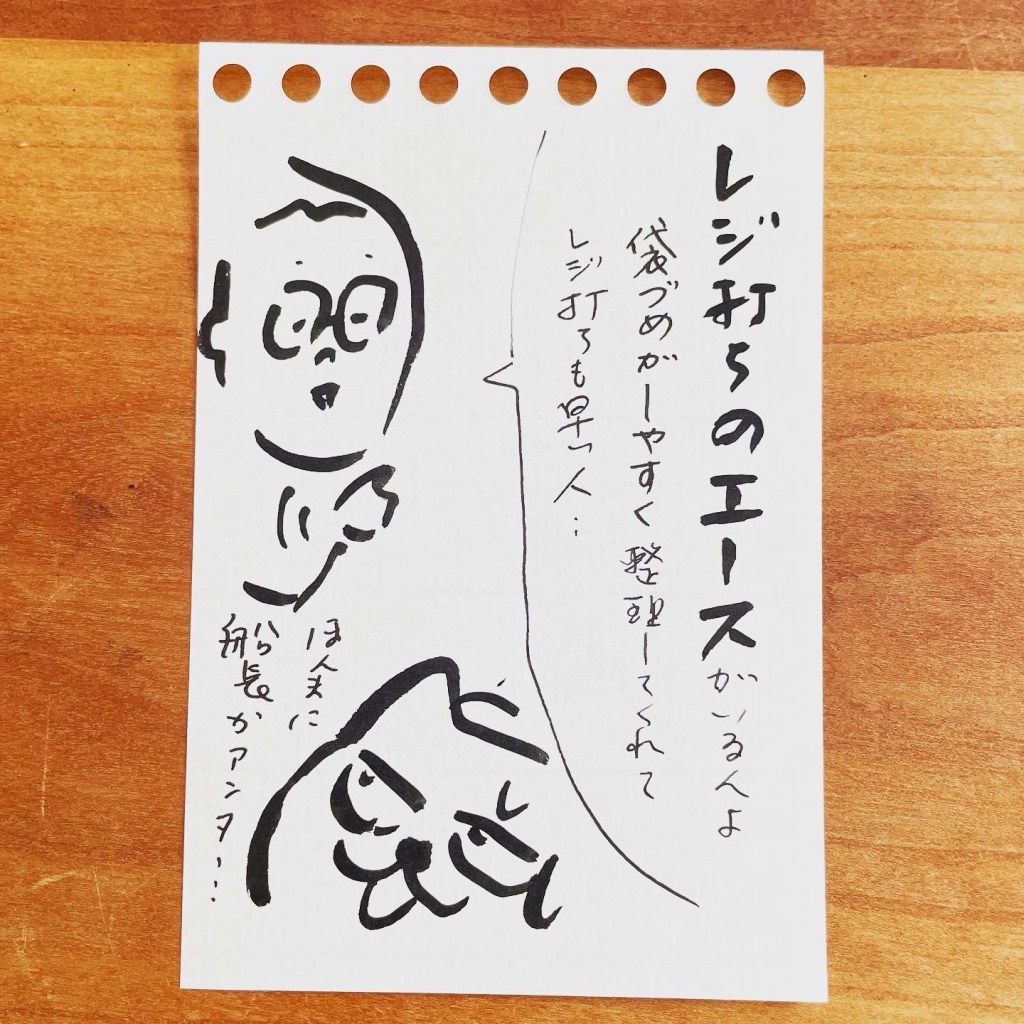 レジ打ちのエースがいるんよ
袋づめがしやすく整理してくれて
レジ打ちも早い人…
ほんまに
船長かアンタ…